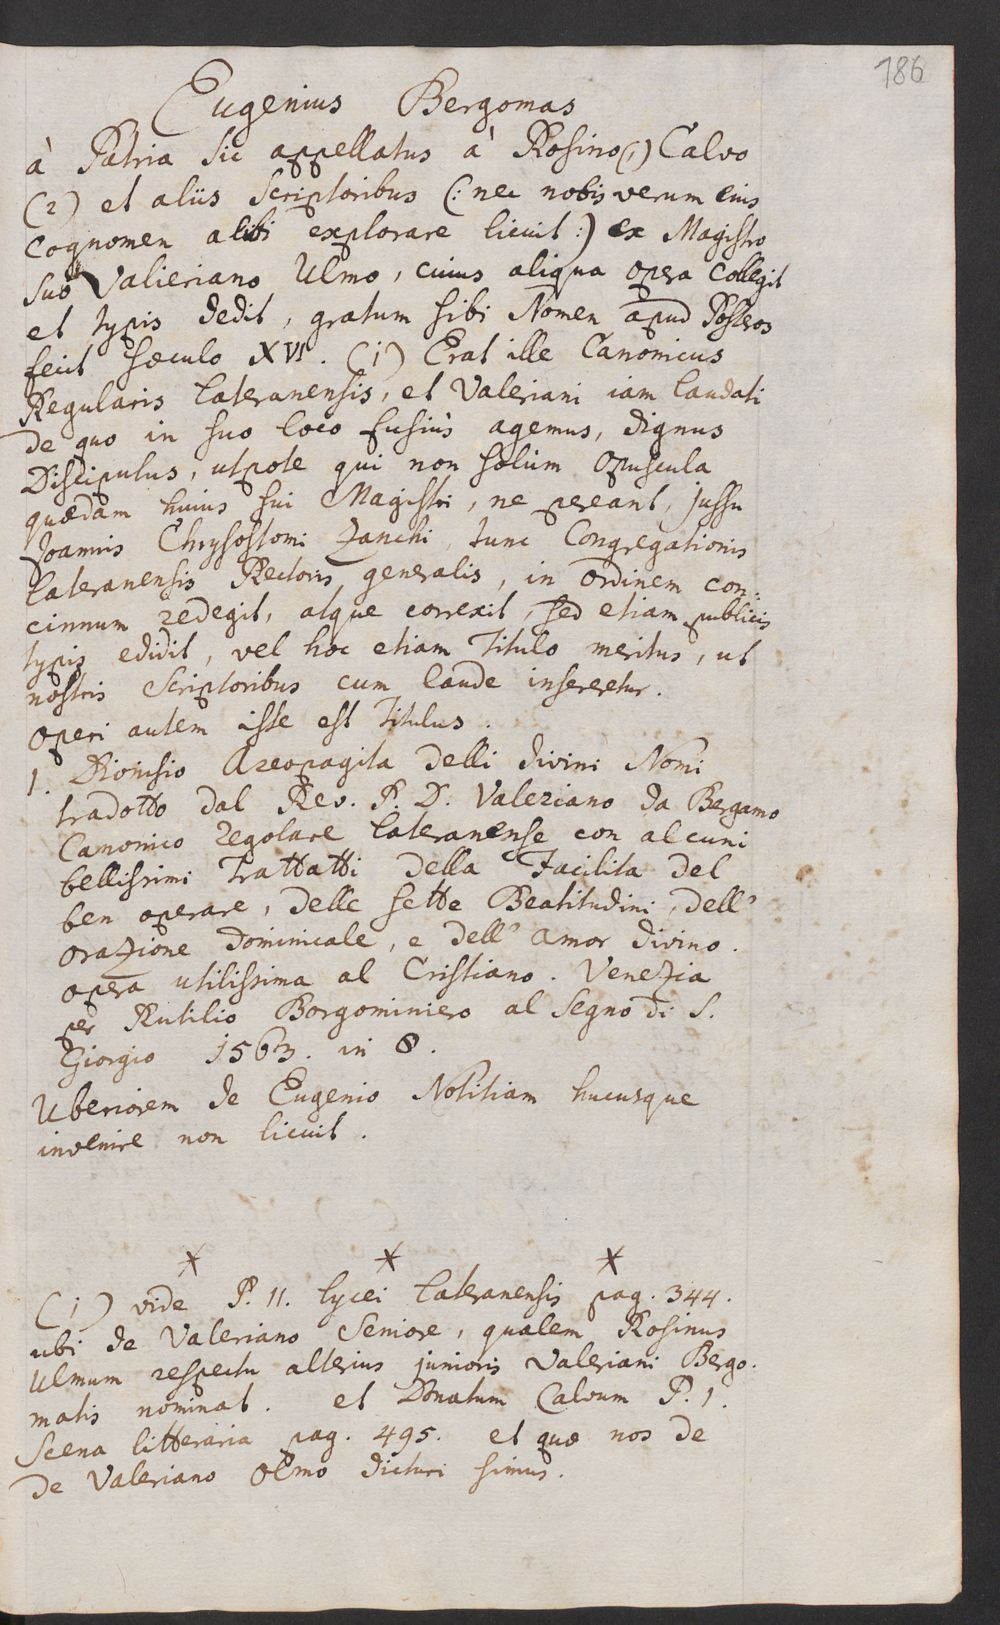 186
Eugenius Bergomas
à Patria sic appellatus à Rosino (1) Calvo
(2) et aliis Scriptoribus (: nec nobis verum eius
Cognomen alibi explorare licuit :) ex Magistro
suo Valieriano Ulmo, cuius aliqua opera Collegit
et typis dedit, gratum sibi Nomen apud Posteros
fecit sæculo XVI. (1) Erat ille Canonicus
Regularis Lateranensis, et Valeriani iam laudati
de quo in suo loco fusiùs agemus, dignus
Discipulus, utpote qui non solùm Opuscula
quædam huius sui Magistri, ne pereant, jussu
Joannis Chrysostomi Zanchi, tunc Congregationis
Lateranensis Rectoris generalis, in ordinem con=
cinnum redegit, atque correxit, sed etiam publicis
typis edidit, vel hoc etiam Titulo meritus, ut
nostris Scriptoribus cum laude insereretur.
Operi autem iste est Titulus.
1. Dionisio Areopagita delli divini Nomi
tradotto dal Rev. P. D. Valeriano da Bergamo
Canonico regolare lateranense con alcuni
bellissimi Trattatti della Facilita del
ben operare, delle sette Beatitudini, dell'
orazione Dominicale, e dell' amor divino.
opera utilissima al Cristiano. Venezia
per Rutilio Borgominiero al segno di S.
Giorgio 1563. in 8.
Uberiorem de Eugenio Notitiam hucusque
invenire non licuit.
* * *
(1) vide P. II. Lycei Lateranensis pag. 344.
ubi de Valeriano Seniore, qualem Rosinus
Ulmum respectu alterius junioris Valeriani Bergo.
matis nominat. et Donatum Calvum P. 1.
Scena litteraria pag. 495. et quæ nos de
de Valeriano Olmo dicturi simus.